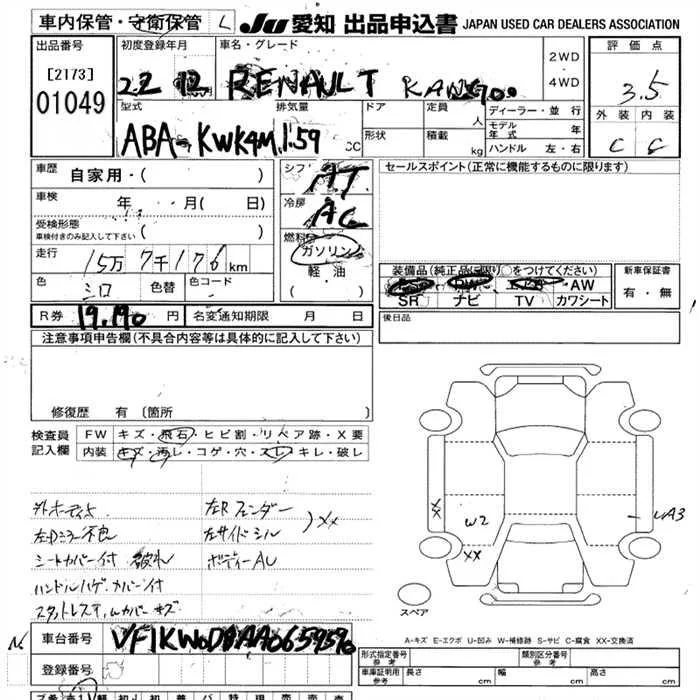 車内保管・守衛保管 L JU 愛知 出品申込書 JAPAN USED CAR DEALERS ASSOCIATION
出品番号 初度登録年月 車名・グレード 2WD・4WD 評価点
[2173] 01049 22 12 RENAULT 3.5
型式 排気量 ドア 定員 人 ディーラー・並行 外装 内装
モデル年式 年
ABA-KWK4M 1.59 CC 形状 積載 kg ハンドル 左・右 C C
車歴 自家用・( ) シフト AT セールスポイント(正常に機能するものに限ります)
車検 年 月( 日) 冷房 AC
受検形態 車検付きのみ記入して下さい ( ) 燃料 ガソリン
走行 15万7千176km 軽油 装備品(純正品に限り○をつけてください) 新車保証書
色 シロ 色替 色コード ( ・ ) AW 有・無
SR ナビ TV カワシート
R券 19,190 円 名変通知期限 月 日 後日品
注意事項申告欄(不具合内容等は具体的に記入して下さい)
修復歴 有(箇所
検査員記入欄 FW キズ・飛石・ヒビ割・リペア跡・X要
内装 キズ・汚レ・コゲ・穴・スレ・キレ・破レ
左Rフェンダー
左Dミラー不良 左サイドシル )XX
シートカバー付 破れ
ハンドルハゲ・カバー付
XX W2 XX A3
スペア
A-キズ E-エクボ U-凹み W-補修跡 S-サビ C-腐食 XX-交換済
車台番号 VF1KW0D0AA0659596
形式指定番号 参考 類別区分番号 参考
登録番号 車庫証明用 参考 長さ cm 幅 cm 高さ cm